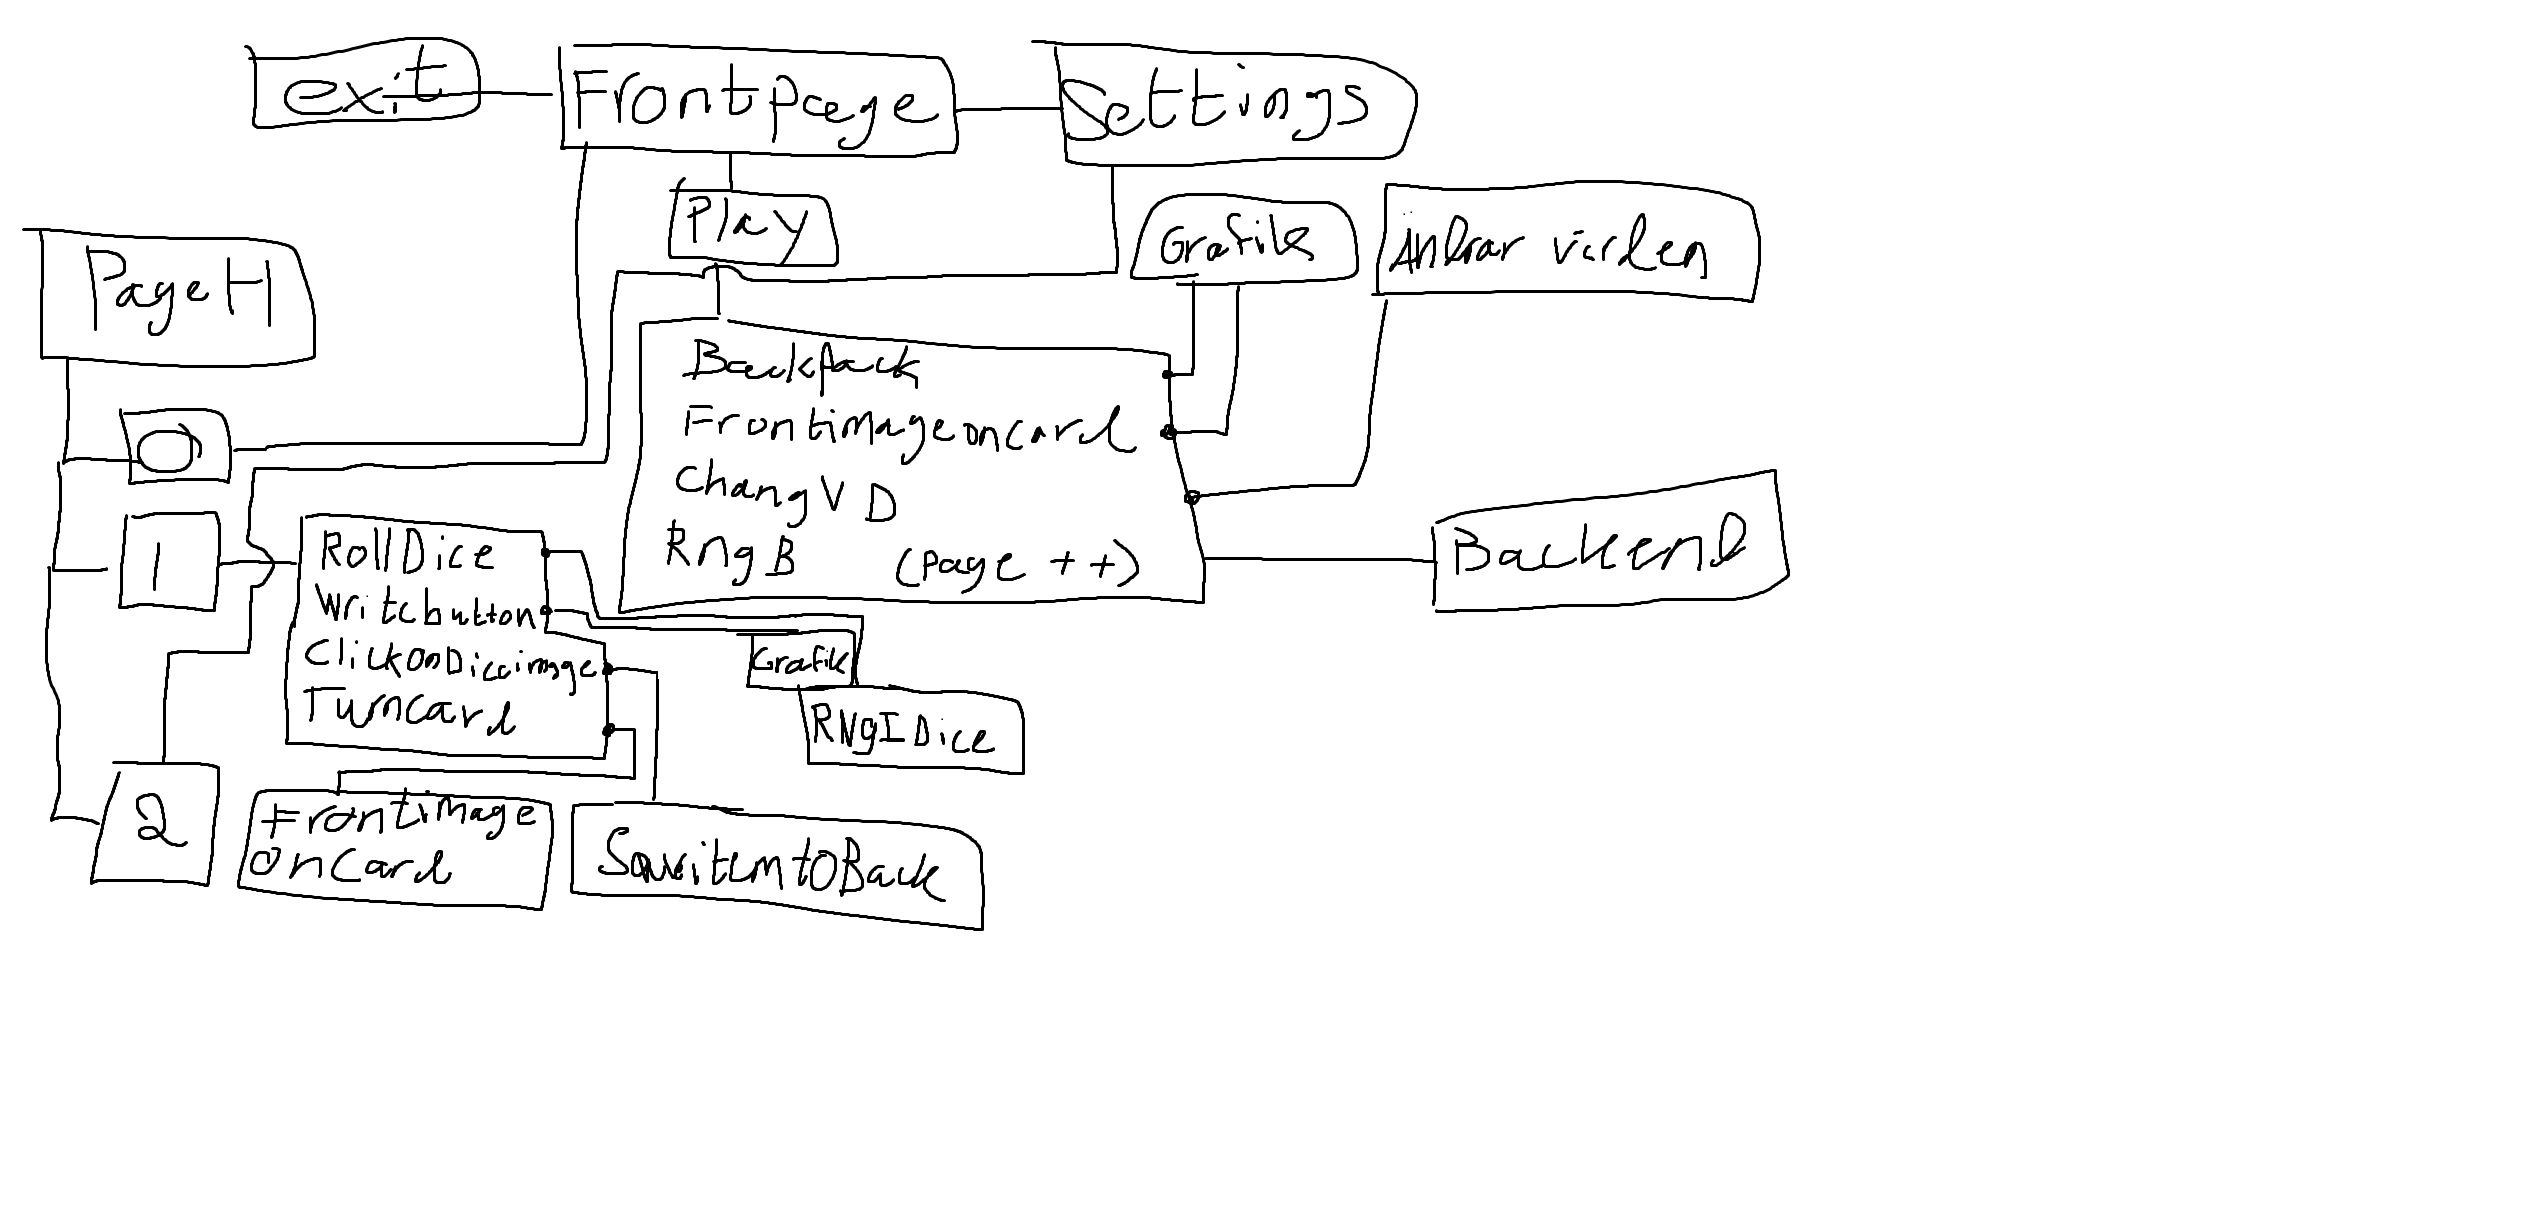 exit
Frontpage
Settings
Play
Grafik
Ändrar värden
PageH
Backpack
Frontimageoncard
ChangVD
RngB (page ++)
0
1
RollDice
Writebutton
ClickOnDiceimage
Turncard
Backend
Grafik
RNgIDice
2
Frontimage
OnCard
SaveitemtOBack